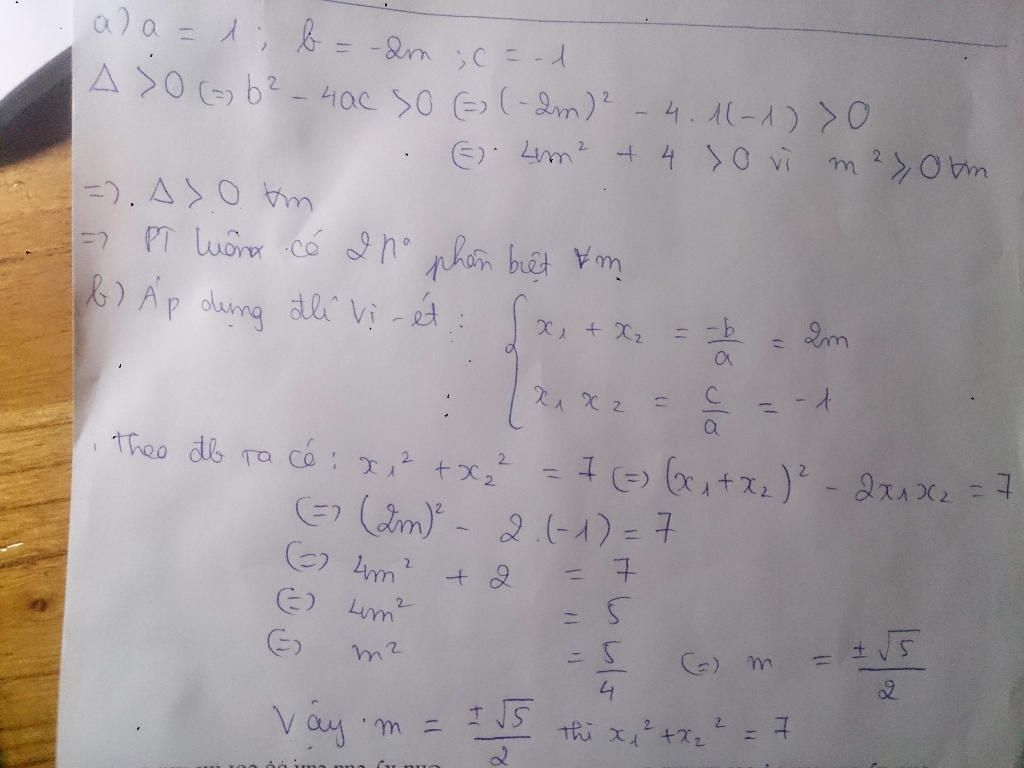 a) a = 1 ; b = -2m ; c = -1
Δ > 0 (=) b² - 4ac > 0 (=) (-2m)² - 4 . 1(-1) > 0
(=) 4m² + 4 > 0 vì m² ≥ 0 ∀m
=) . Δ > 0 ∀m
=) PT luôn có 2 n° phân biệt ∀m
b) Áp dụng đlí Vi-ét : { x₁ + x₂ = -b/a = 2m
x₁ x₂ = c/a = -1
Theo đb ra có : x₁² + x₂² = 7 (=) (x₁+x₂)² - 2x₁x₂ = 7
(=) (2m)² - 2 . (-1) = 7
(=) 4m² + 2 = 7
(=) 4m² = 5
(=) m² = 5/4 (=) m = ±√5/2
Vậy m = ±√5/2 thì x₁²+x₂² = 7